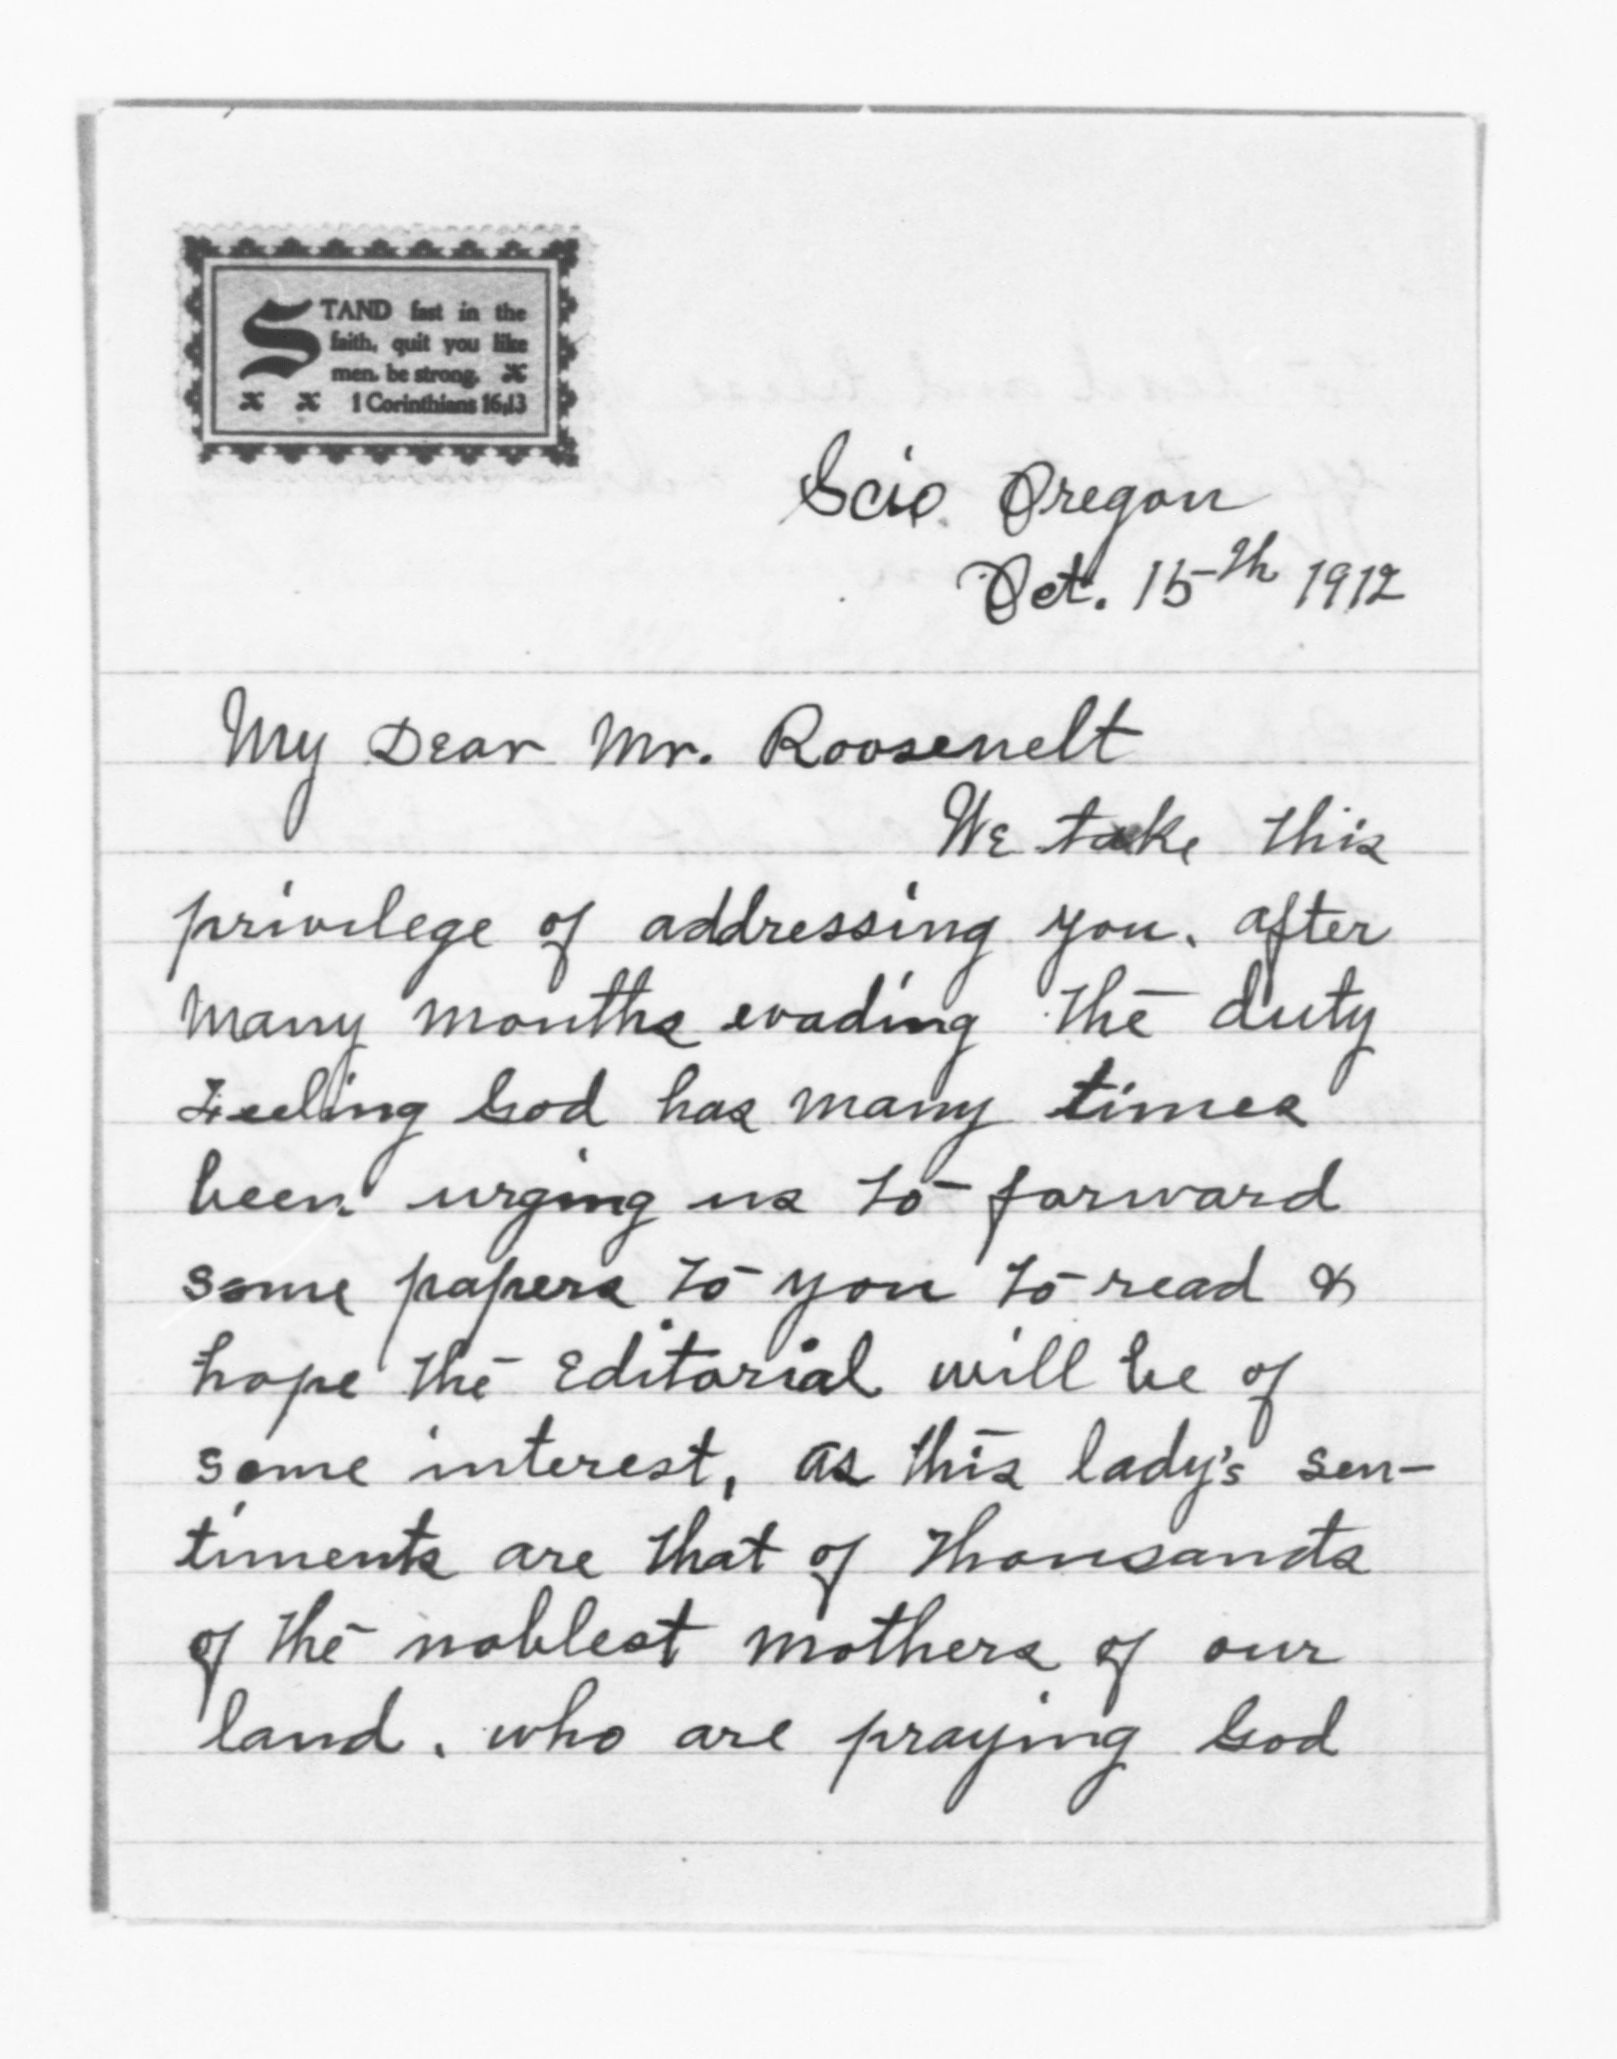 STAND fast in the
faith, quit you like
men, be strong.
1 Corinthians 16,13
Scio. Oregon
Oct. 15th 1912
My Dear Mr. Roosevelt
We take this
privilege of addressing you, after
many months evading the duty
Feeling God has many times
been urging us to forward
some papers to you to read &
hope the Editorial will be of
some interest, as this lady's sen-
timents are that of thousands
of the noblest mothers of our
land, who are praying God